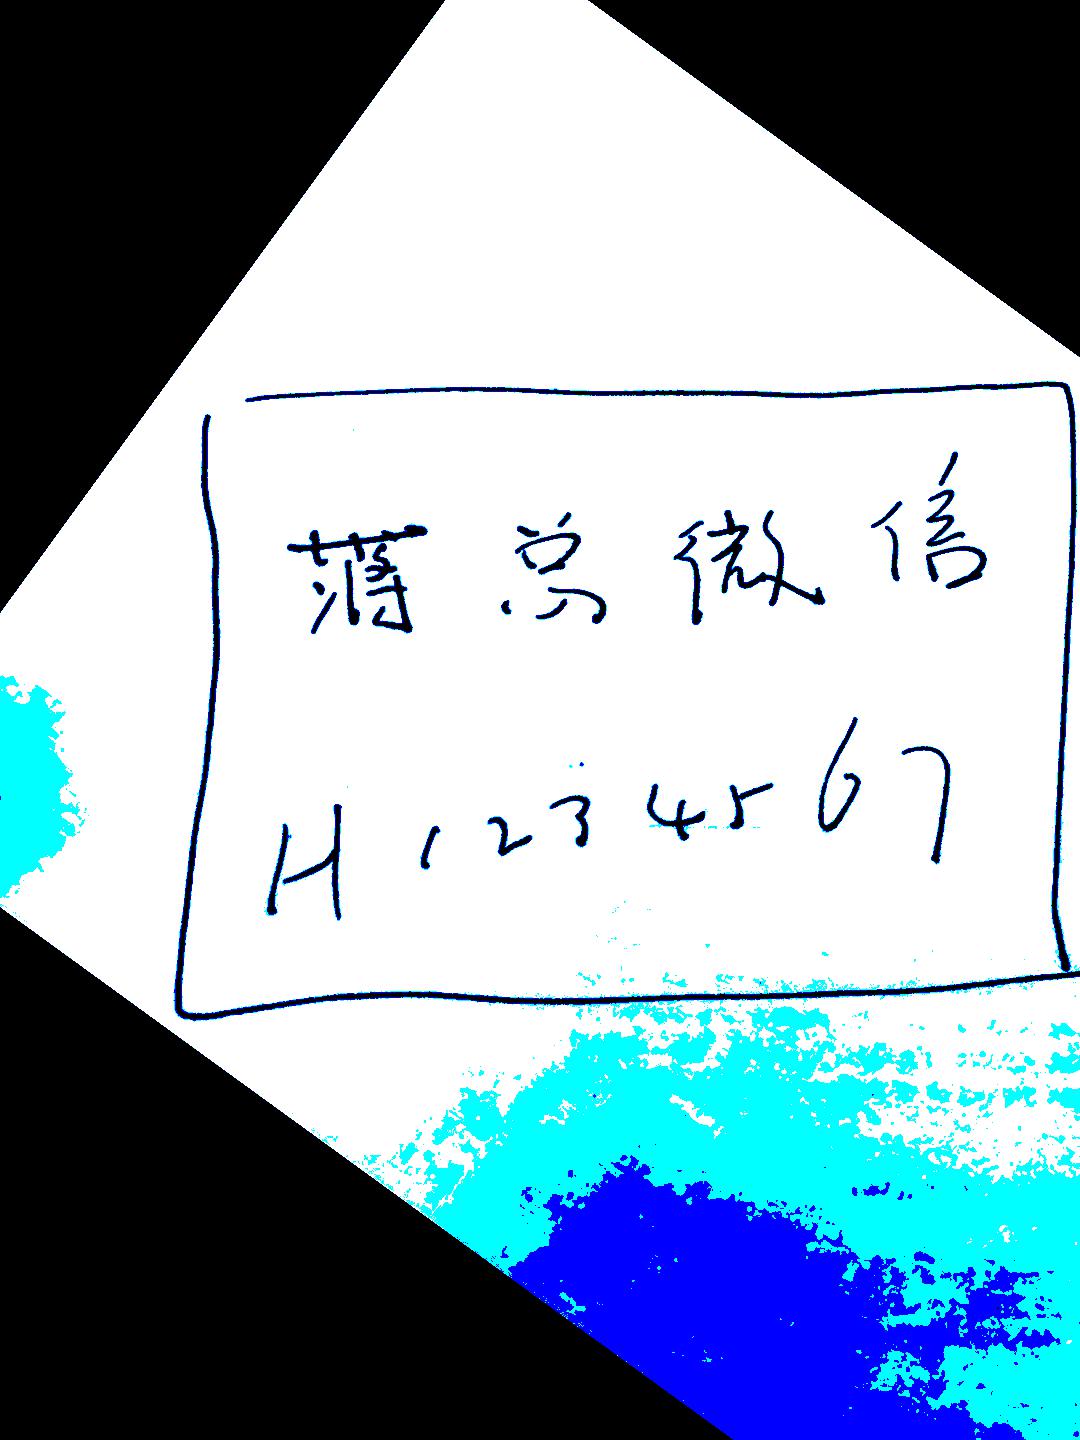 薄总微信
H1234567